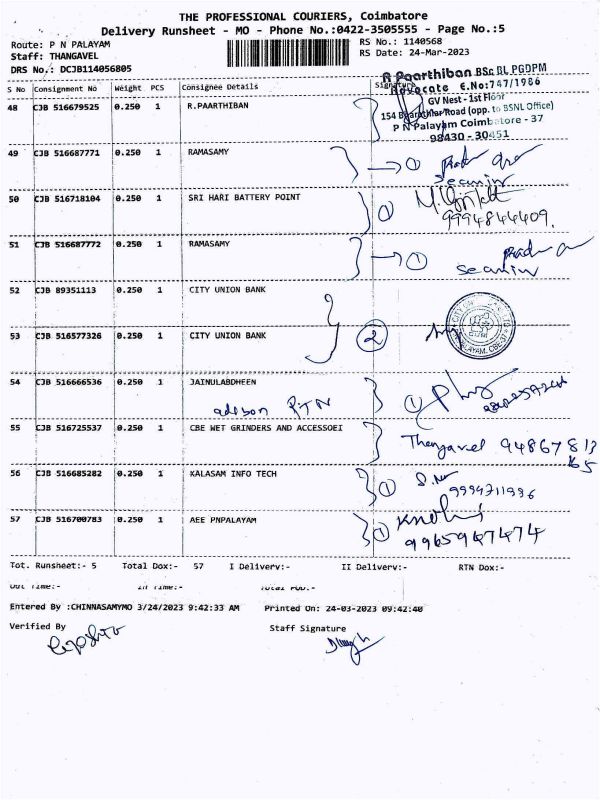 THE PROFESSIONAL COURIERS, Coimbatore
Delivery Runsheet - MO - Phone No.:0422-3505555 - Page No.:5
Route: P N PALAYAM RS No.: 1140568
Staff: THANGAVEL RS Date: 24-Mar-2023
DRS No.: DCJB114056805
S No Consignment No Weight PCS Consignee Details Signature
R Paarthiban BSc BL PGDPM
Advocate E.No:747/1986
GV Nest - 1st Floor
154 Road (opp. to BSNL Office)
P N Palayam Coimbatore - 37
98430 - 30451
48 CJB 516679525 0.250 1 R.PAARTHIBAN
49 CJB 516687771 0.250 1 RAMASAMY 1
50 CJB 516718104 0.250 1 SRI HARI BATTERY POINT 1
9994844409.
51 CJB 516687772 0.250 1 RAMASAMY 1
52 CJB 89351113 0.250 1 CITY UNION BANK
53 CJB 516577326 0.250 1 CITY UNION BANK 2
54 CJB 516666536 0.250 1 JAINULABDHEEN 1
55 CJB 516725537 0.250 1 CBE WET GRINDERS AND ACCESSOEI
Thangavel 94867813
56 CJB 516685282 0.250 1 KALASAM INFO TECH 1
9994711996
57 CJB 516700783 0.250 1 AEE PNPALAYAM 1
9965947474
Tot. Runsheet:- 5 Total Dox:- 57 I Delivery:- II Delivery:- RTN Dox:-
Out Time:- In Time:- Total POD:-
Entered By :CHINNASAMYMO 3/24/2023 9:42:33 AM Printed On: 24-03-2023 09:42:40
Verified By Staff Signature